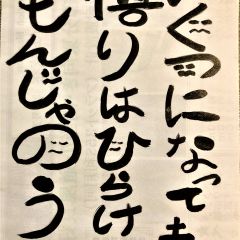 いくつになっても
悟りはひらけ
もんじゃのう